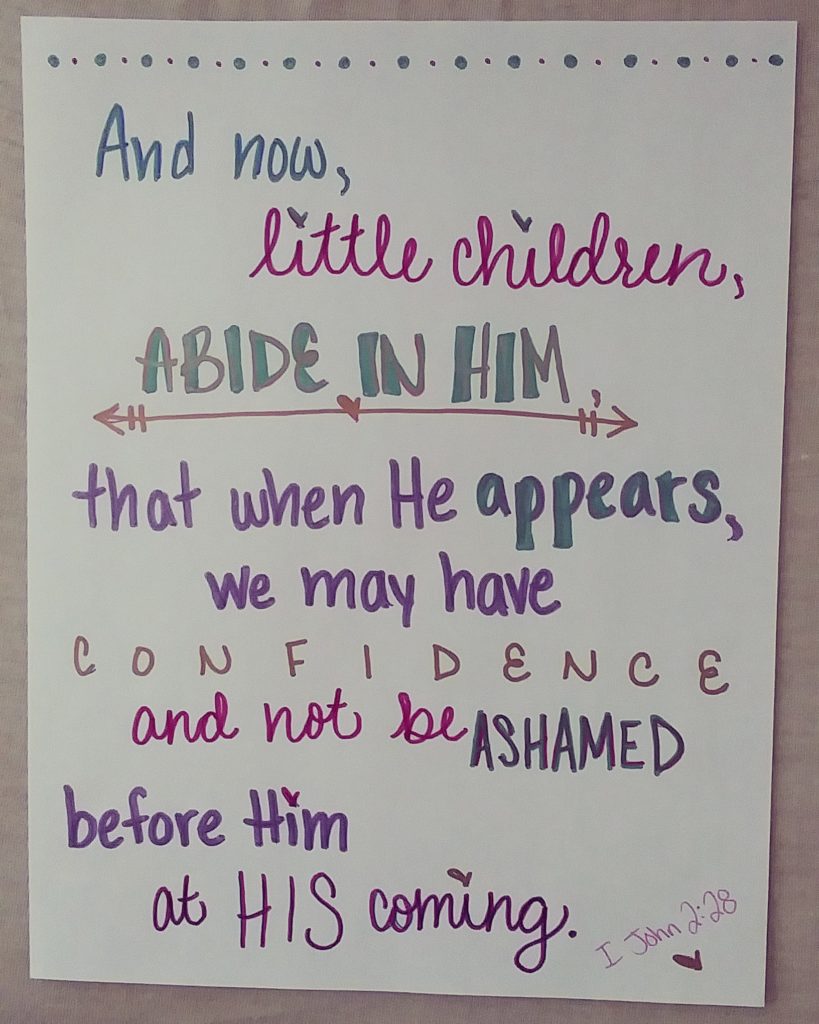 And now,
little children,
ABIDE IN HIM,
that when He appears,
we may have
CONFIDENCE
and not be ASHAMED
before Him
at HIS coming.
I John 2:28